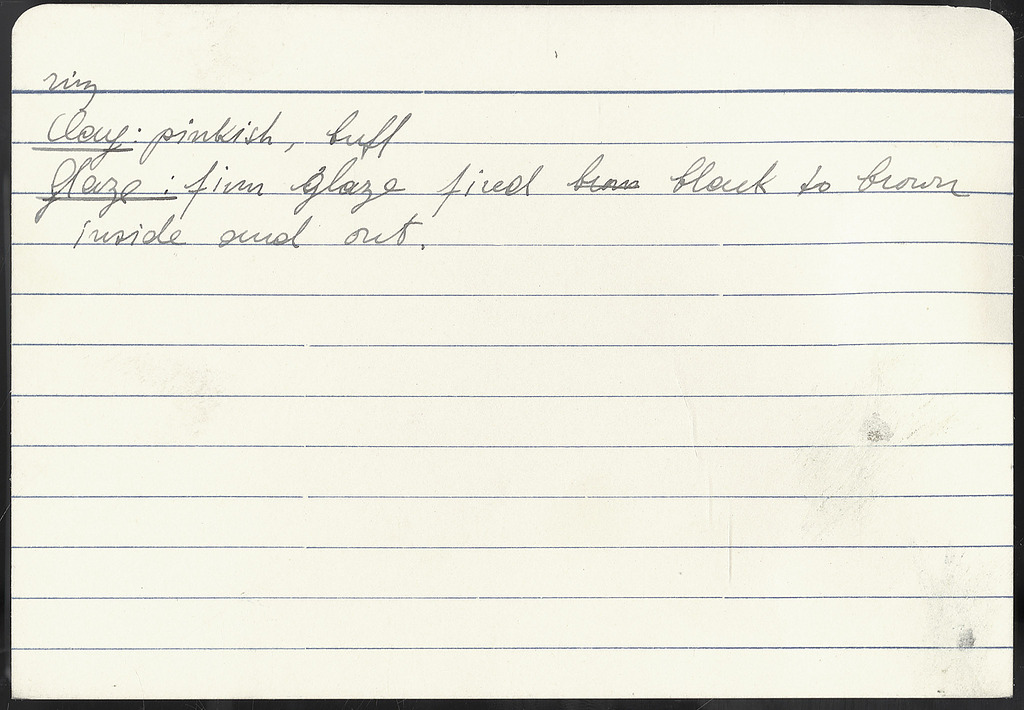 ring
Clay: pinkish, buff
Glaze: firm glaze fired brow black to brown
inside and out.